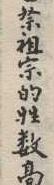 祭祖宗的牲数高